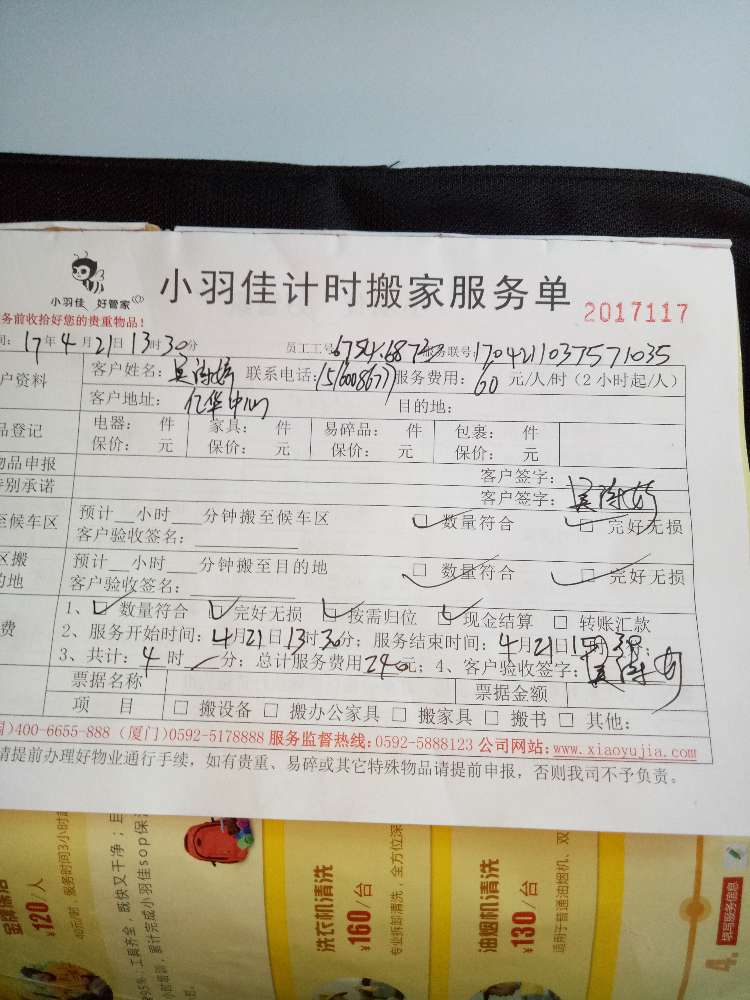 小羽佳 好管家
小羽佳计时搬家服务单 2017117
务前收拾好您的贵重物品!
间: 17年4月21日13时30分 员工工号 服务联号: 170421103757 1035
户资料 客户姓名: 联系电话: 服务费用: 60 元/人/时(2小时起/人)
客户地址: 亿华中心 目的地:
品登记 电器: 件 家具: 件 易碎品: 件 包裹: 件
保价: 元 保价: 元 保价: 元 保价: 元
物品申报 客户签字:
特别承诺 客户签字:
至候车区 预计__小时__分钟搬至候车区 数量符合 完好无损
客户验收签名:
区搬 预计__小时__分钟搬至目的地 数量符合 完好无损
的地 客户验收签名:
1、 数量符合 完好无损 按需归位 现金结算 转账汇款
费 2、服务开始时间: 4月21日13时30分; 服务结束时间: 4月21日
3、共计: 4时 分; 总计服务费用240元; 4、客户验收签字:
票据名称 票据金额
项 目 搬设备 搬办公家具 搬家具 搬书 其他:
)400-6655-888 (厦门)0592-5178888 服务监督热线:0592-5888123 公司网站: www.xiaoyujia.com
请提前办理好物业通行手续, 如有贵重、易碎或其它特殊物品请提前申报, 否则我司不予负责。
¥120/人
40元/时, 服务时间3小时
95%, 工具齐全, 既快又干净;
累计完成小羽佳sop保
洗衣机清洗
¥160/台
专业拆卸清洗, 全方位深
油烟机清洗
¥130/台
适用于普通油烟机、双
4.
填写服务信息